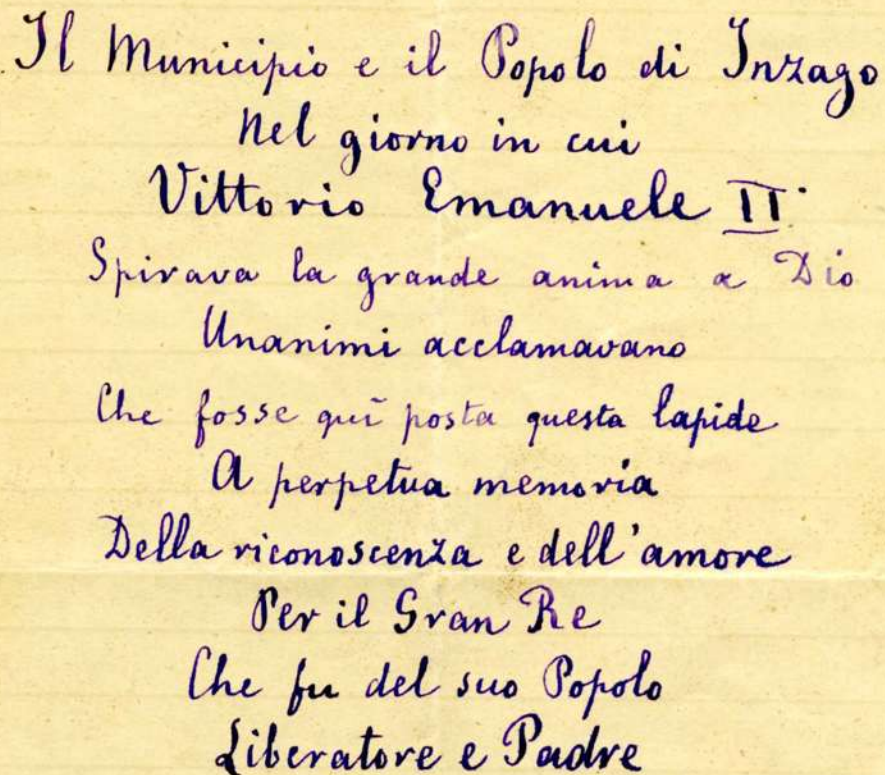 Il Municipio e il Popolo di Inzago
Nel giorno in cui
Vittorio Emanuele II.
Spirava la grande anima a Dio
Unanimi acclamavano
Che fosse quī posta questa lapide
A perpetua memoria
Della riconoscenza e dell'amore
Per il Gran Re
Che fu del suo Popolo
Liberatore e Padre